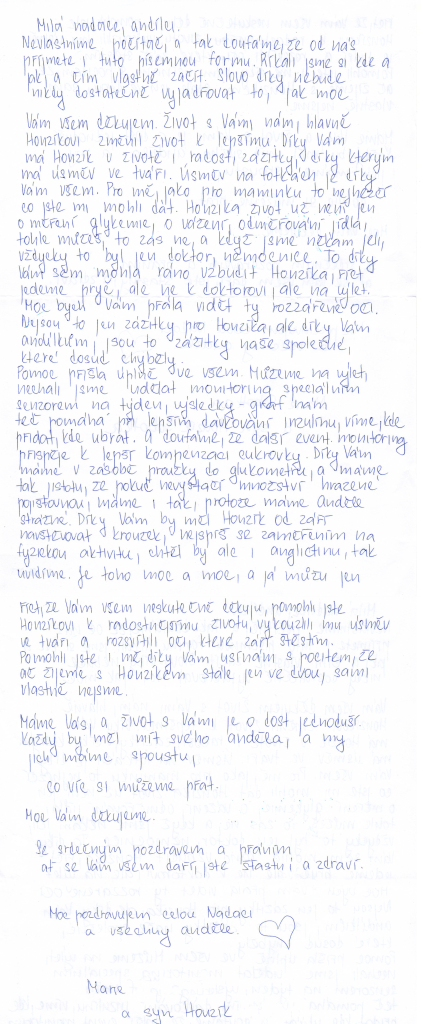 Milá nadace, andílci.
Nevlastníme počítač, a tak doufáme, že od nás
přijmete i tuto písemnou formu. Říkali jsme si kde a
jak, a čím vlastně začít. Slovo díky nebude
nikdy dostatečně vyjadřovat to, jak moc
Vám všem děkujem. Život s Vámi, nám, hlavně
Honzíkovi změnil život k lepšímu. Díky Vám
má Honzík v životě i radost, zážitky, díky kterým
má úsměv ve tváři. Úsměv na fotkách je díky
Vám všem. Pro mě, jako pro maminku to nejhezčí
co jste mi mohli dát. Honzíka život už není jen
o měření glykemie, o vážení, odměřování jídla,
tohle můžeš, to zas ne, a když jsme někam jeli,
vždycky to byl jen doktor, nemocnice. To díky
Vám jsem mohla ráno vzbudit Honzíka, říct
jedeme pryč, ale ne k doktorovi, ale na výlet.
Moc bych Vám přála vidět ty rozzářené oči.
Nejsou to jen zážitky pro Honzíka, ale díky Vám
andílkům, jsou to zážitky naše společné,
které dosud chyběly.
Pomoc přišla úplně ve všem. Můžeme na výlet,
nechali jsme udělat monitoring speciálním
senzorem na týden, výsledky - graf nám
teď pomáhá při lepším dávkování inzulinu, víme, kde
přidat, kde ubrat. A doufáme, že další event. monitoring
přispěje k lepší kompenzaci cukrovky. Díky Vám
máme v zásobě proužky do glukometru, a máme
tak jistotu, že pokud nevystačí množství hrazené
pojišťovnou, máme i tak, protože máme Anděle
strážné. Díky Vám by měl Honzík od září
navštěvovat kroužek, nejspíš se zaměřením na
fyzickou aktivitu, chtěl by ale i angličtinu, tak
uvidíme. Je toho moc a moc, a já můžu jen
říct, že Vám všem neskutečně děkuju, pomohli jste
Honzíkovi k radostnějšímu životu, vykouzlili mu úsměv
ve tváři a rozsvítili oči, které září štěstím.
Pomohli jste i mě, díky Vám usínám s pocitem, že
ač žijeme s Honzíkem stále jen ve dvou, sami
vlastně nejsme.
Máme Vás, a život s Vámi je o dost jednoduší.
Každý by měl mít svého anděla, a my
jich máme spoustu,
co víc si můžeme přát.
Moc Vám děkujeme.
Se srdečným pozdravem a přáním
ať se Vám všem daří, jste šťastní a zdraví.
Moc pozdravujem celou Nadaci
a všechny anděle.
Marie
a syn Honzík